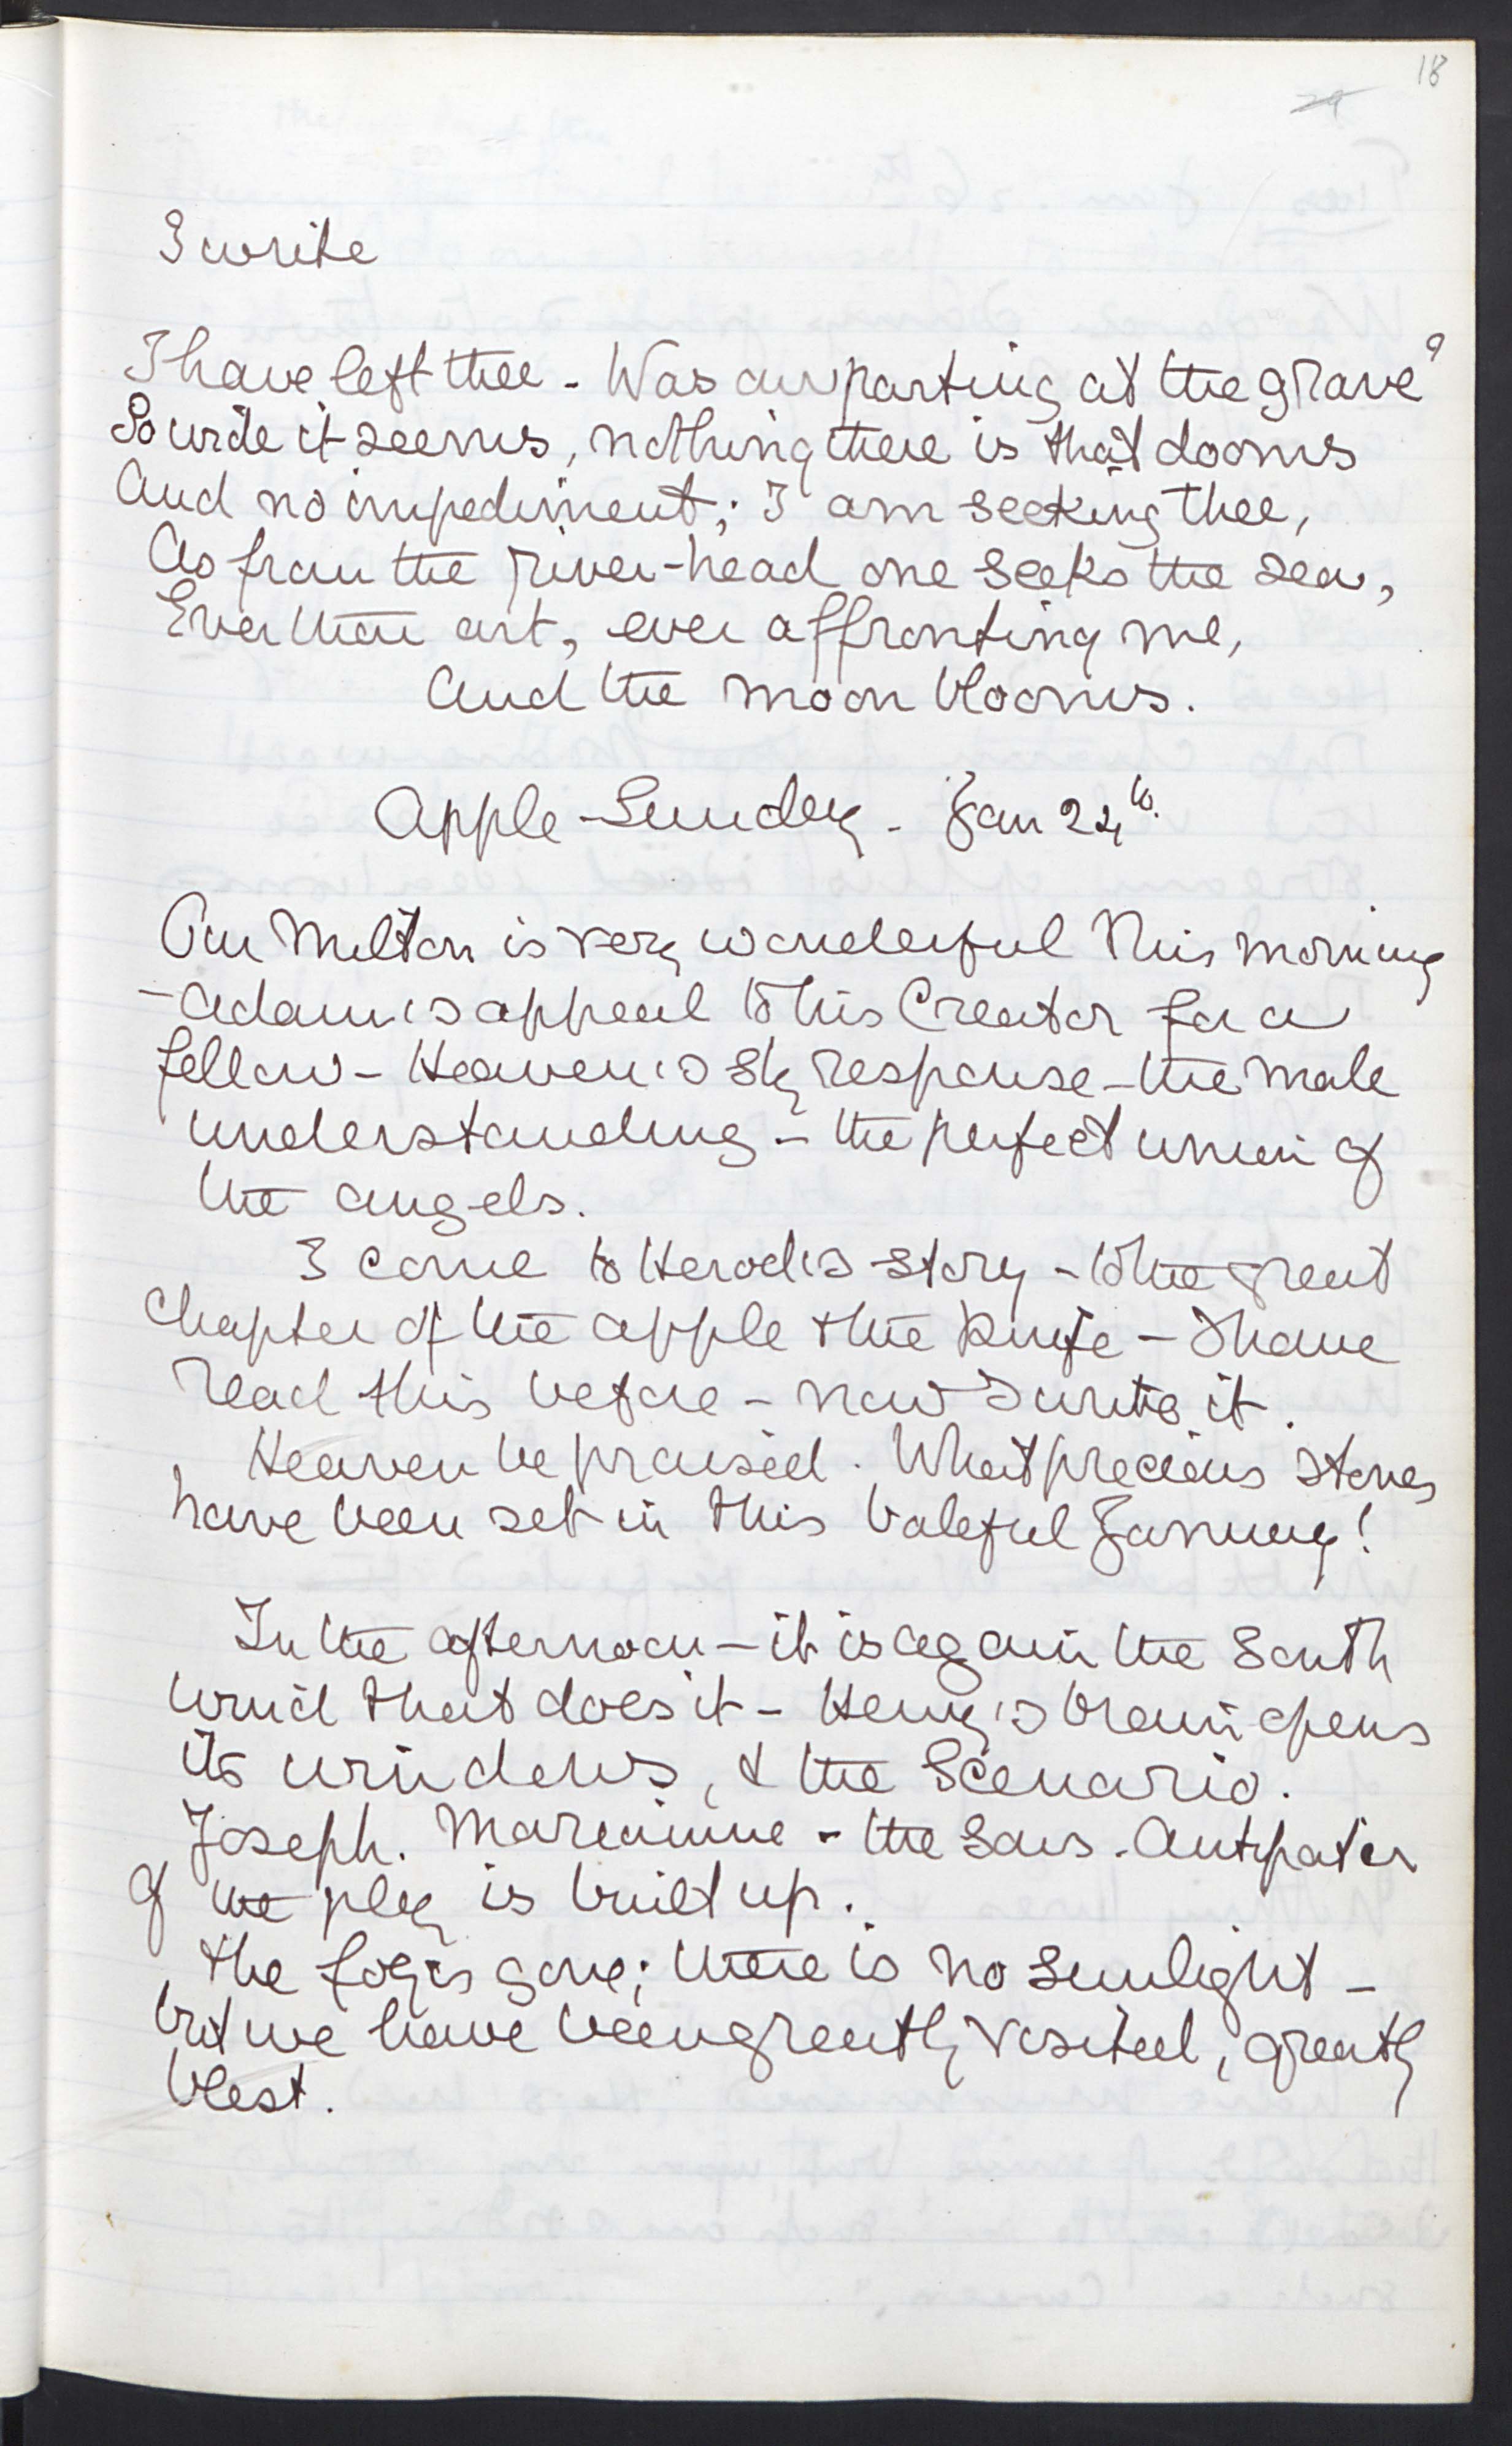 18
29
I write
I have left thee - Was our parting at the grave?
So wide it seems, nothing there is that dooms
And no impediment; I am seeking thee,
As from the river-head one seeks the sea,
Ever thou art, ever affronting me,
And the moon blooms.
Apple-Sunday - Jan 24th.
Our Milton is very wonderful this morning
- Adam's appeal to his Creator for a
fellow - Heaven's sly response - the male
understanding - the perfect union of
the angels.
I come to Herod's story - to the great
Chapter of the apple & the knife - I have
read this before - now I write it.
Heaven be praised. What precious stones
have been set in this baleful January!
In the afternoon - it is again the South
wind that does it - Henry's brain opens
its windows, & the Scenario.
Joseph. Mariamne - the Sons - Antipater
of the play is built up.
The fog is gone; there is no sunlight -
but we have been greatly visited, greatly
blest.